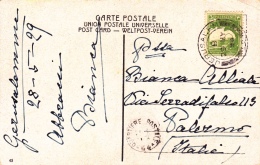 CARTE POSTALE
UNION POSTALE UNIVERSELLE
POST CARD — WELTPOST-VEREIN
Gerusalemme
28-5-99
Abbracci
Bianca
Bianca Alliata
Via Serradifalco 113
Palermo
(Italie)